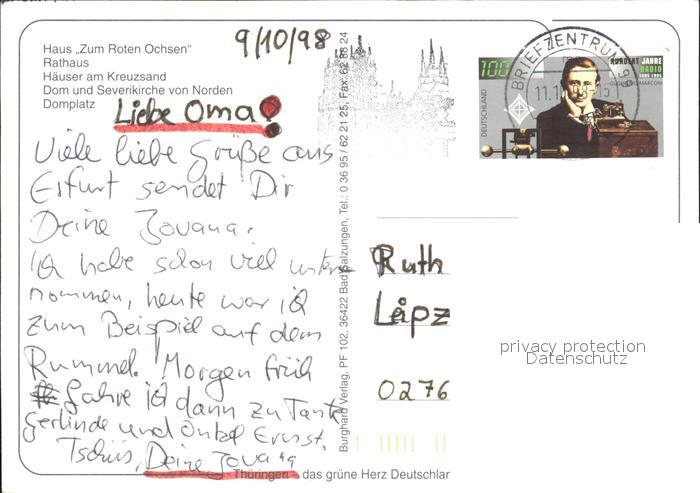 9/10/98
Haus „Zum Roten Ochsen“
Rathaus
Häuser am Kreuzsand
Dom und Severikirche von Norden
Domplatz
Liebe Oma!
Viele liebe Grüße aus
Erfurt sendet Dir
Deine Jovana.
Ich habe schon viel unter
nommen, heute war ich
zum Beispiel auf dem
Rummel. Morgen früh
fahre ich dann zu Tante
Gerlinde und Onkel Ernst.
Tschüs, Deine Jovana
Thüringen - das grüne Herz Deutschlan
Burghard Verlag, PF 102, 36422 Bad Salzungen, Tel.: 0 36 95 / 62 21 25, Fax: 62 88 24
BRIEFZENTRUM
11.1
100
DEUTSCHLAND
HUNDERT JAHRE
RADIO
1895-1995
MARCONI
Ruth
Leipz
0276
privacy protection
Datenschutz